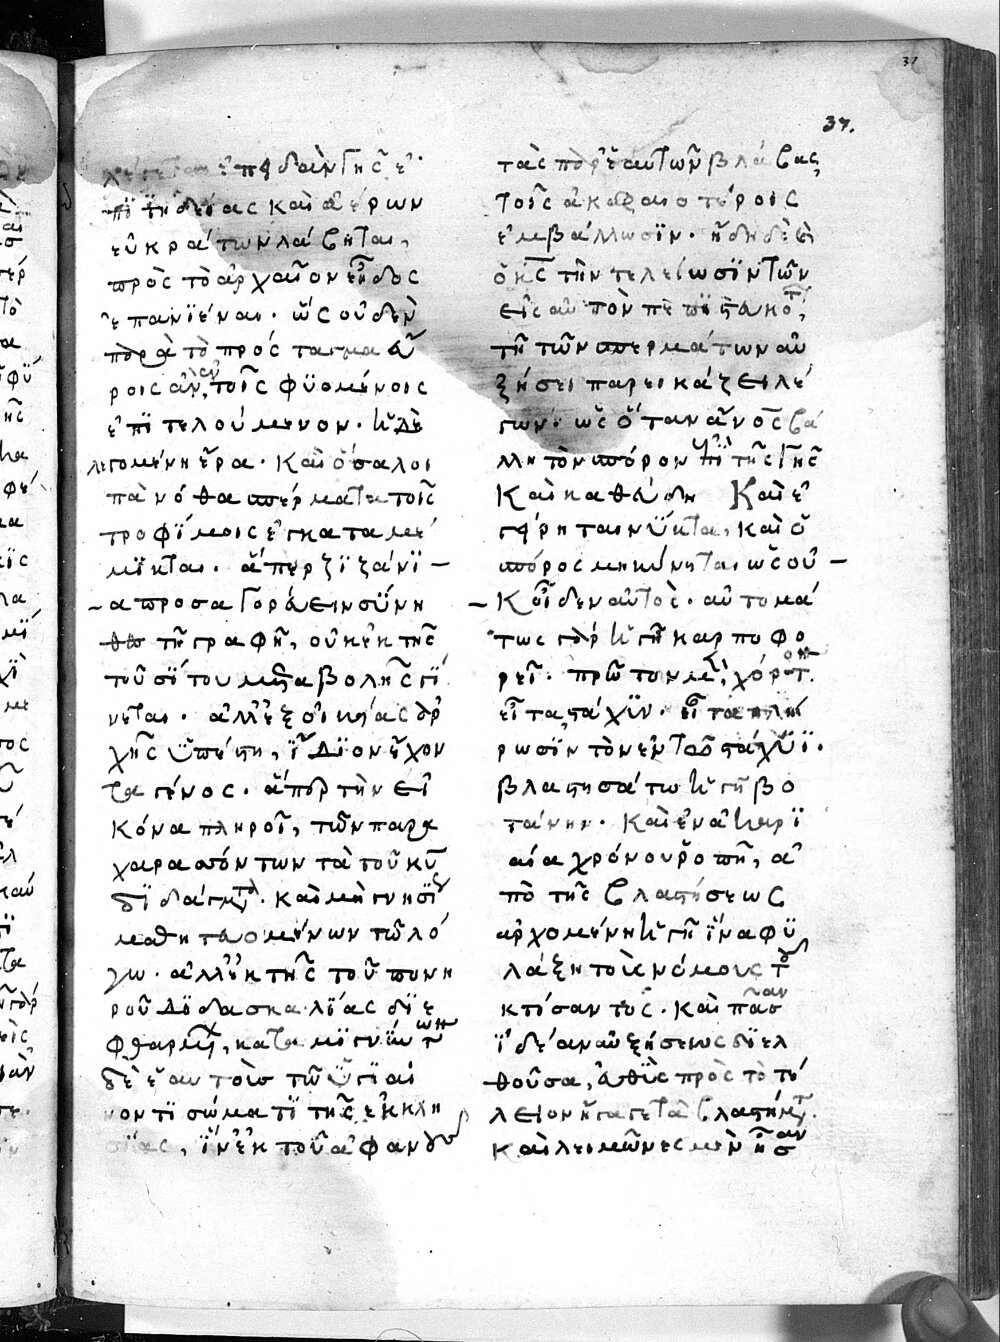 37
37.
ἐπειδὰν γῆς ἐ
πιτηδείας καὶ ἀέρων
εὐκράτων λάβηται,
πρὸς τὸ ἀρχαῖον εἶδος
ἐπανιέναι. ὡς οὐδὲν
παρὰ τὸ πρόσταγμα
τοῖς φυομένοις
ἐπιτελούμενον. ἡ δὲ
λεγομένη ἔρα. καὶ ὅσα λοι
πὰ νόθα σπέρματα τοῖς
τροφίμοις ἐγκαταμέ
μικται. ἅπερ ζιζάνι –
– α προσαγορεύειν σύνη
θες τῇ γραφῇ, οὐκ ἐκ τῆς
τοῦ σίτου μεταβολῆς γί
νεται. ἀλλ' ἐξ οἰκείας ἀρ
χῆς ὑπέστη, ἴδιον ἔχον
τα γένος. ἅπερ τὴν εἰ
κόνα πληροῖ, τῶν παρα
χαρασσόντων τὰ τοῦ κυ
διδάγματα. καὶ μὴ γνησίως
μαθητευομένων τῷ λό
γῳ. ἀλλ' ἐκ τῆς τοῦ πονη
ροῦ διδασκαλίας διε
φθαρμένων, καταμιγνύντων
δὲ ἑαυτοὺς τῷ ὑγιαί
νοντι σώματι τῆς ἐκκλη
σίας, ἵν' ἐκ τοῦ ἀφανοῦς
τὰς παρ' ἑαυτῶν βλάβας
τοῖς ἀκεραιοτέροις
ἐμβάλλωσιν. ἤδη δὲ
ὁ κς τὴν τελείωσιν τῶν
εἰς αὐτὸν πεπιστευκότων,
τῇ τῶν σπερμάτων αὐ
ξήσει παρεικάζει λέ
γων. ὡς ὅταν ἄνος βά
λλῃ τὸν σπόρον ἐπὶ τῆς γῆς
καὶ καθεύδῃ καὶ ἐ
γείρηται νύκτα, καὶ ὁ
σπόρος μηκύνηται ὡς οὐ –
– κ οἶδεν αὐτός. αὐτομά
τως γὰρ ἡ γῆ καρποφο
ρεῖ. πρῶτον μὲν χόρτον.
εἶτα στάχυν. εἶτα πλή
ρωσιν τὸν ἐν τῷ στάχυϊ.
βλαστησάτω ἡ γῆ βο
τάνην. καὶ ἐν ἀκαρι
αία χρόνου ῥοπῇ, ἀ
πὸ τῆς βλαστήσεως
ἀρχομένη ἡ γῆ ἵνα φυ
λάξῃ τοὺς νόμους τοῦ
κτίσαντος. καὶ πᾶσαν
ἰδέαν αὐξήσεως διελ
θοῦσα, εὐθὺς πρὸς τὸ τέ
λειον ἤγαγε τὰ βλαστήματα.
καὶ λειμῶνες μὲν ἦσαν